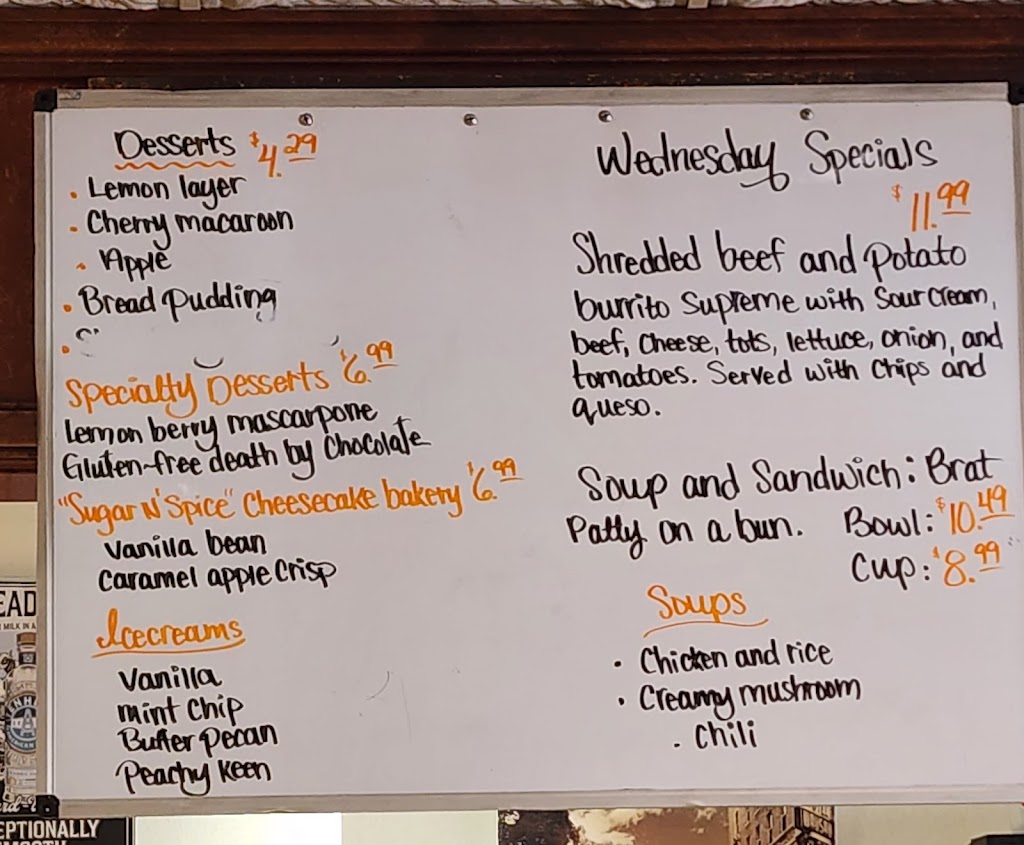 Desserts $4.29
Lemon layer
Cherry macaroon
Apple
Bread pudding
Specialty Desserts $6.99
Lemon berry mascarpone
Gluten-free death by Chocolate
"Sugar N' Spice" Cheesecake bakery $6.99
Vanilla bean
Caramel apple Crisp
Icecreams
Vanilla
mint Chip
Butter Pecan
Peachy Keen
Wednesday Specials
$11.99
Shredded beef and Potato
burrito Supreme with Sour Cream,
beef, Cheese, tots, lettuce, onion, and
tomatoes. Served with Chips and
queso.
Soup and Sandwich: Brat
Patty on a bun. Bowl: $10.49
Cup: $8.99
Soups
Chicken and rice
Creamy mushroom
Chili